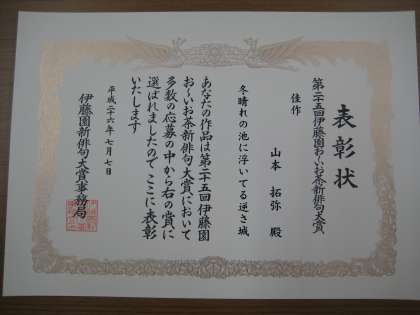 表彰状
第二十五回伊藤園お〜いお茶新俳句大賞
佳作
山本 拓弥 殿
冬晴れの池に浮いてる逆さ城
あなたの作品は第二十五回伊藤園
お〜いお茶新俳句大賞において
多数の応募の中から右の賞に
選ばれましたので ここに表彰
いたします
平成二十六年七月七日
伊藤園新俳句大賞事務局